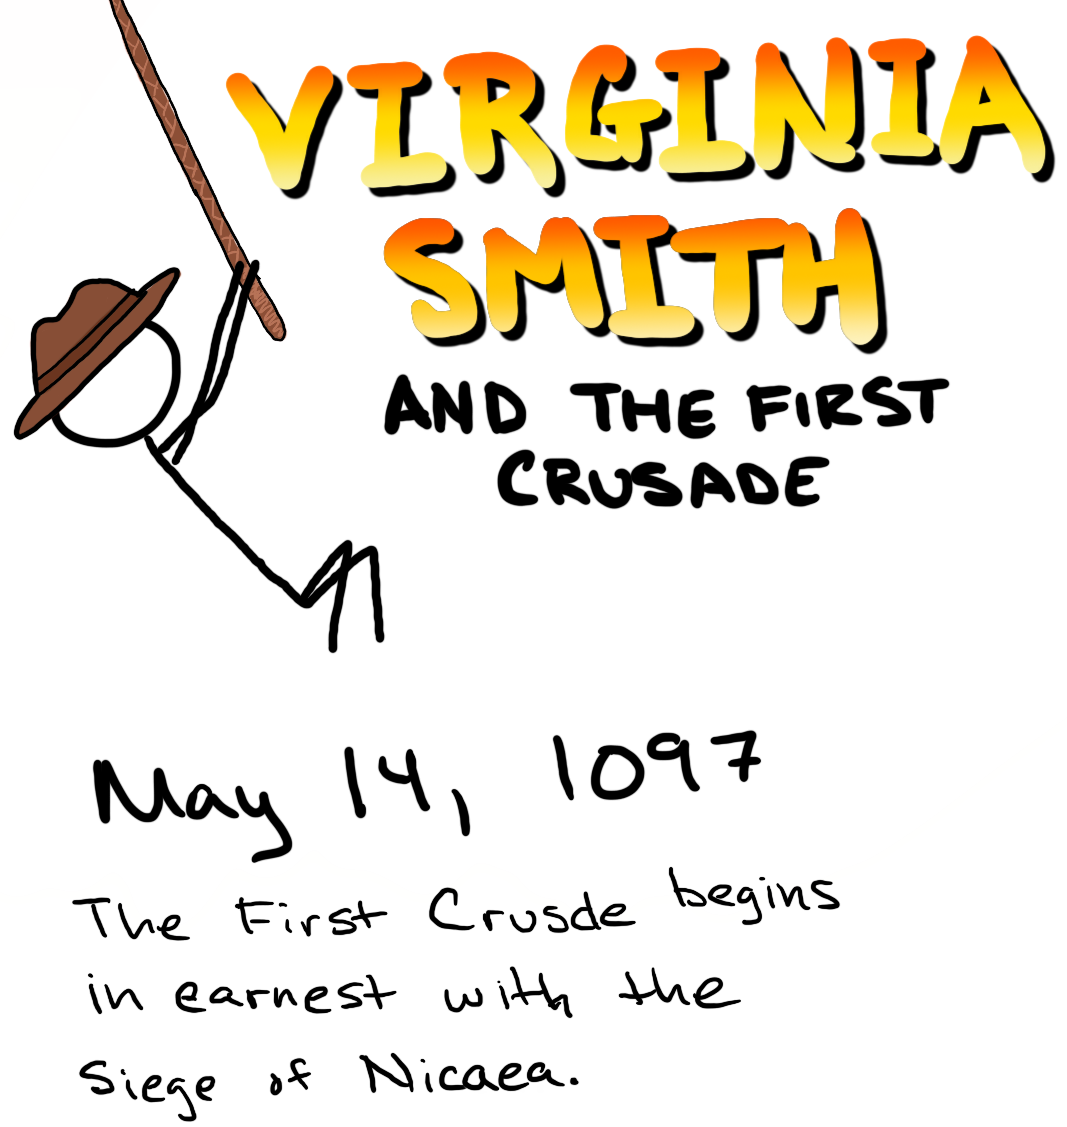 VIRGINIA
SMITH
AND THE FIRST
CRUSADE
May 14, 1097
The First Crusde begins
in earnest with the
Siege of Nicaea.